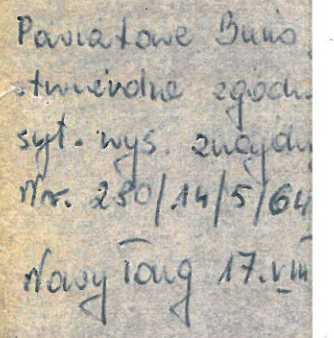 Powiatowe Biuro
stwierdza zgodn.
syt. wys. znajdu
Nr. 250/14/5/64
Nowy Targ 17.VIII